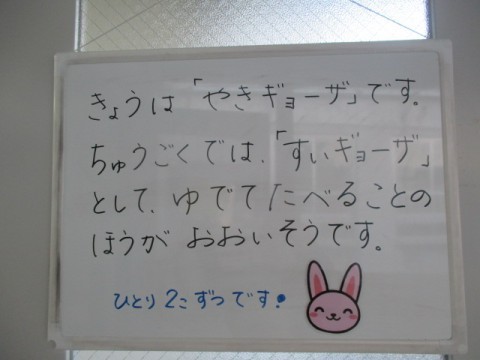 きょうは「やきギョーザ」です。
ちゅうごくでは、「すいギョーザ」
として、ゆでてたべることの
ほうが おおいそうです。
ひとり2こずつです!